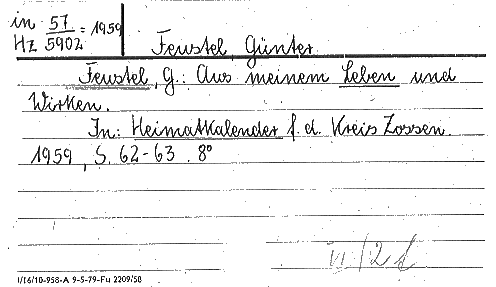 in 57 = 1959
Hz 5902
Feustel, Günter
Feustel, G.: Aus meinem Leben und
Wirken.
In: Heimatkalender f. d. Kreis Zossen.
1959, S. 62-63. 8°
VI/2
I/16/10-958-A 9-5-79-Fu 2209/58